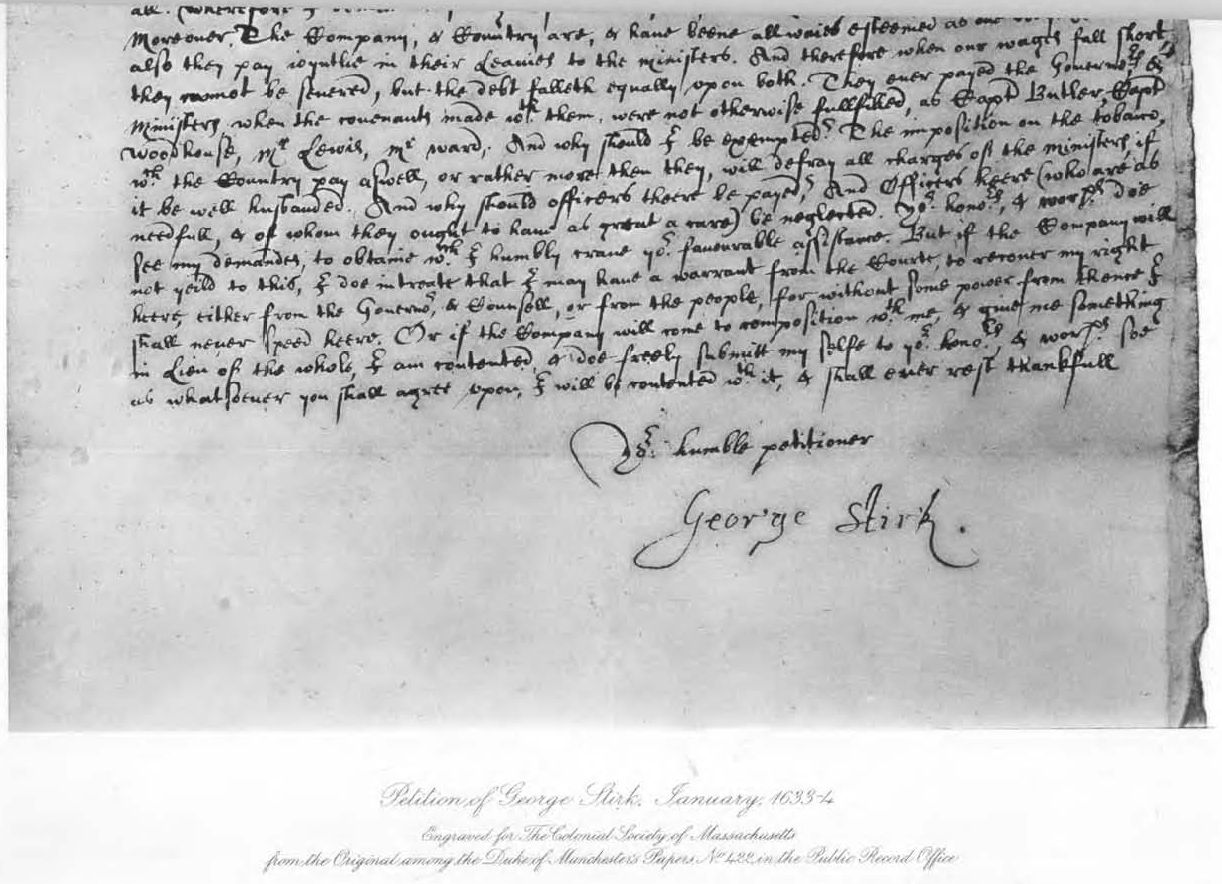 all. Wherefore I
Moreover, The Company, & Country are, & have beene allwaies esteemed as one
also they pay ioyntlie in their Leavies to the ministers. And therefore when our wages fall short
they cannot be severed, but the debt falleth equally upon both. They ever payed the Governo.rs &
Ministers, when the covenants made wth them, were not otherwise fullfilled, as Capt Butler, Capt
Woodhouse, Mr Lewis, Mr Ward, And why should I be exempted? The imposition on the tobacco,
wch the Country pay aswell, or rather more then they, will defray all charges of the ministers if
it be well husbanded. And why should officers there be payed, And Officers heere (who are as
needfull, & of whom they ought to have as great a care) be neglected. Yor. hono.rs, & worps. doe
see my demandes, to obtaine wch I humbly crave yor. favourable assistance. But if the Company will
not yeild to this, I doe intreate that I may have a warrant from the Courte, to recover my right
heere, either from the Governor, & Counsell, or from the people, for without some power from thence I
shall never speed heere. Or if the Company will come to composition wth me, & give me something
in Lieu of the whole, I am contented, & doe freely submitt my selfe to yor. hono.rs & worps. soe
as whatsoever you shall agree upon, I will be contented wth it, & shall ever rest thankfull
Yor. humble petitioner
George Stirk.
Petition of George Stirk, January, 1633-4
Engraved for The Colonial Society of Massachusetts
from the Original among the Duke of Manchester's Papers No 422 in the Public Record Office